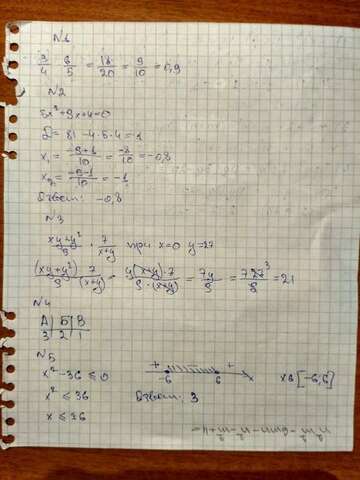 N1
3/4 · 6/5 = 18/20 = 9/10 = 0,9
N2
5x² + 9x + 4 = 0
D = 81 - 4·5·4 = 1
x₁ = (-9+1)/10 = -8/10 = -0,8
x₂ = (-9-1)/10 = -1
Ответ: -0,8
N3
(xy+y²)/9 · 7/(x+y) при x=0 y=27
(xy+y²)/9 · 7/(x+y) = y(x+y)·7/9·(x+y) = 7y/9 = 7·27³/9 = 21
N4
А | Б | В
3 2 1
N5
x² - 36 ≤ 0
+ -6 6 + x
x∈[-6,6]
x² ≤ 36
Ответ: 3
x ≤ ±6